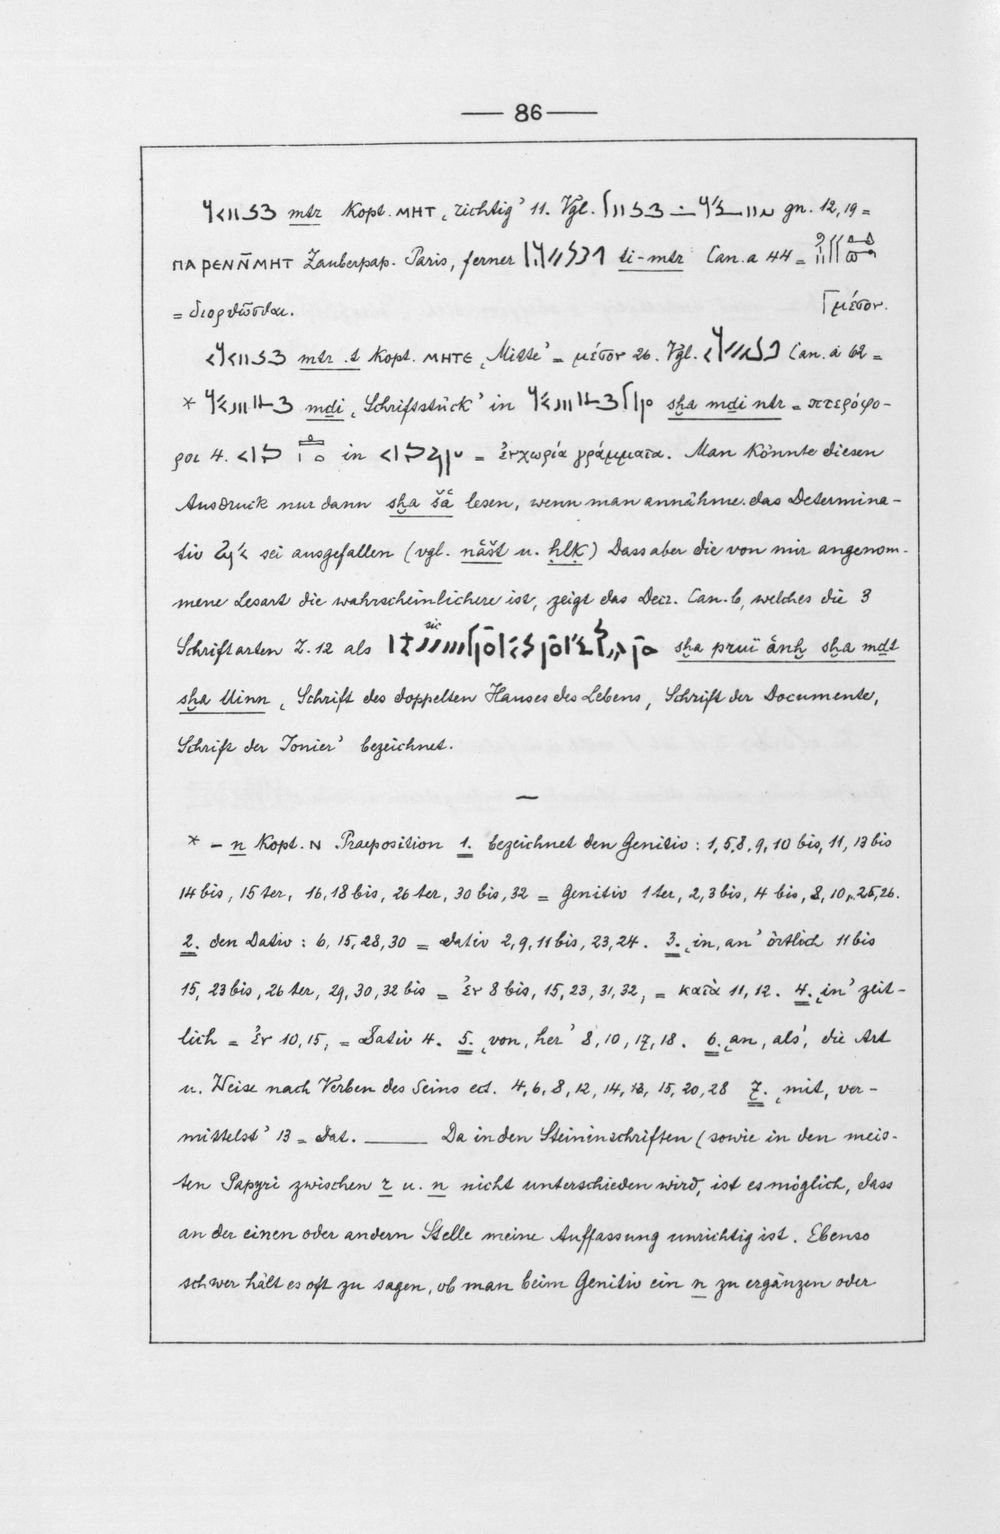 — 86 —
mtr Kopt. ⲙⲏⲧ ‚richtig’ 11. Vgl. gn. 12,19 =
ⲡⲁ ⲣⲉⲛⲛ̄ⲙⲏⲧ Zauberpap. Paris, ferner ti-mtr Can. a 44 =
= διορθῶσθαι. ⌈μέσον.
mtr .t Kopt. ⲙⲏⲧⲉ ‚Mitte’ = μέσον 26. Vgl. Can. a 62 =
* mdi ‚Schriftstück’ in sḫa mdi ntr = πτερόφο-
ροι 4. in = ἐνχωρία γράμματα. Man könnte diesen
Ausdruck nur dann sḫa šā lesen, wenn man annähme das Determina-
tiv sei ausgefallen (vgl. nāšt u. ḥlḳ) Dass aber die von mir angenom-
mene Lesart die wahrscheinlichere ist, zeigt das Decr. Can. b, welches die 3
sic
Schriftarten Z. 12 als sḫa pruï ānḫ sḫa mdt
sḫa Uinn ‚Schrift des doppelten Hauses des Lebens, Schrift der Documente,
Schrift der Jonier’ bezeichnet.
—
* – n Kopt. ⲛ Praeposition 1. bezeichnet den Genitiv : 1, 5, 8, 9, 10 bis, 11, 13 bis
14 bis, 15 ter, 16, 18 bis, 26 ter, 30 bis, 32 = Genitiv 1 ter, 2, 3 bis, 4 bis, 8, 10, 25, 26.
2. den Dativ : 6, 15, 28, 30 = Dativ 2, 9, 11 bis, 23, 24. 3. ‚in, an’ örtlich 11 bis
15, 23 bis, 26 ter, 29, 30, 32 bis = ἐν 8 bis, 15, 23, 31, 32, = κατὰ 11, 12. 4. ‚in’ zeit-
lich = ἐν 10, 15, = Dativ 4. 5. ‚von, her’ 8, 10, 17, 18. 6. ‚an, als’, die Art
u. Weise nach Verben des Seins ect. 4, 6, 8, 12, 14, 13, 15, 20, 28 7. ‚mit, ver-
mittelst’ 13 = Dat. ——— Da in den Steininschriften (sowie in den meis-
ten Papyri zwischen r u. n nicht unterschieden wird, ist es möglich, dass
an der einen oder andern Stelle meine Auffassung unrichtig ist. Ebenso
schwer hält es oft zu sagen, ob man beim Genitiv ein n zu ergänzen oder